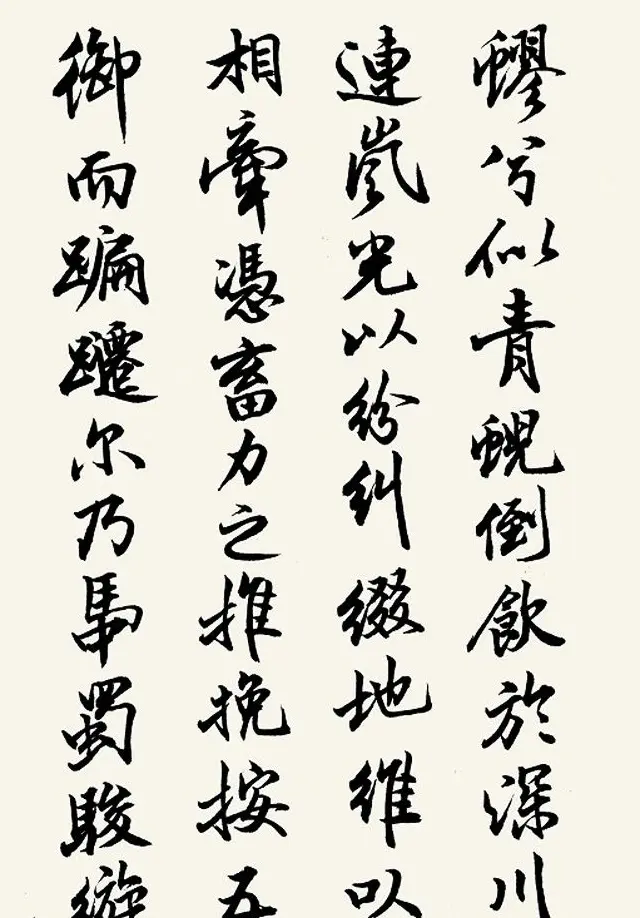 蟉兮似青蜺倒飲於深川
連嵐光以紛糾綴地維以
相牽憑畜力之推挽按五
御而蹁躚尔乃馽蜀駿縼